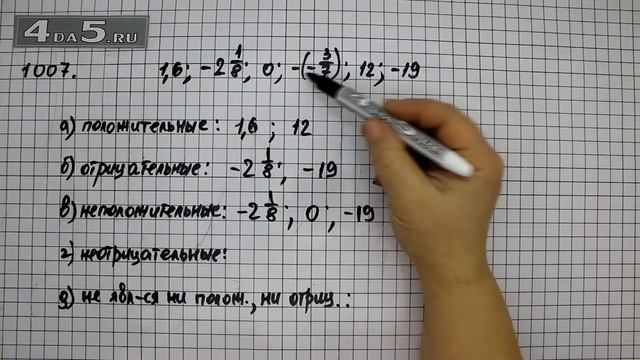 4DA5.RU
1007. 1,6; -2 1/8; 0; -(-3/7); 12; -19
а) положительные: 1,6; 12
б) отрицательные: -2 1/8; -19
в) неположительные: -2 1/8; 0; -19
г) неотрицательные:
д) не явл-ся ни полож., ни отриц.: